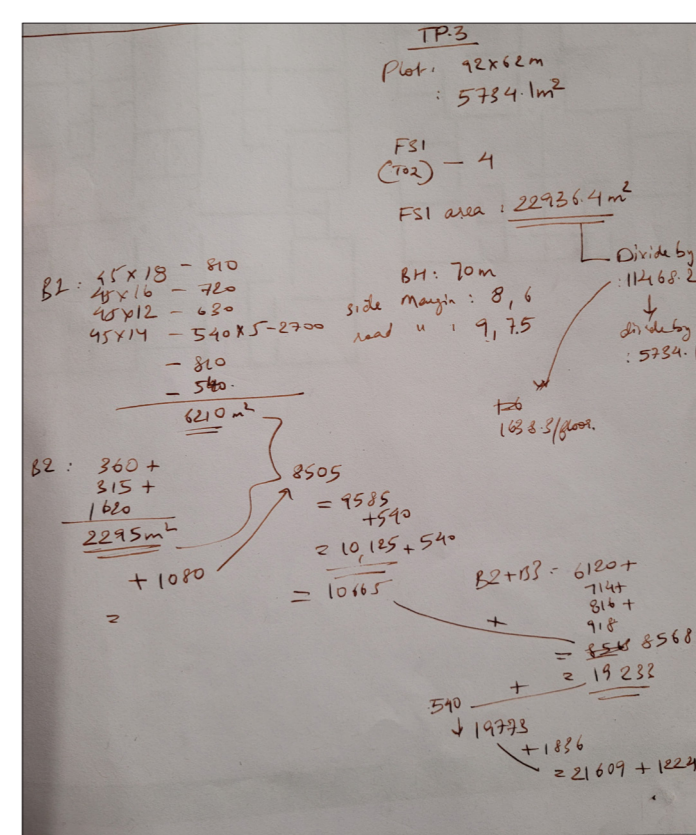 TP-3
Plot: 92x62m
: 5734.1m²
FSI
(TOZ) - 4
FSI area : 22936.4 m²
Divide by
: 11468.2
divide by
: 5734.
BH: 70m
side Margin : 8, 6
road " : 9, 7.5
1638.3/floor.
B1: 45x18 - 810
45x16 - 720
45x12 - 630
45x14 - 540x5-2700
- 810
- 540.
6210 m²
B2: 360 +
315 +
1620
2295m²
+ 1080
=
8505
= 9585
+540
= 10,125 + 540
= 10665
B2+B3 = 6120 +
714+
816 +
918
= 8568
+
= 19 233
540 +
19773
+1836
= 21609 + 1224